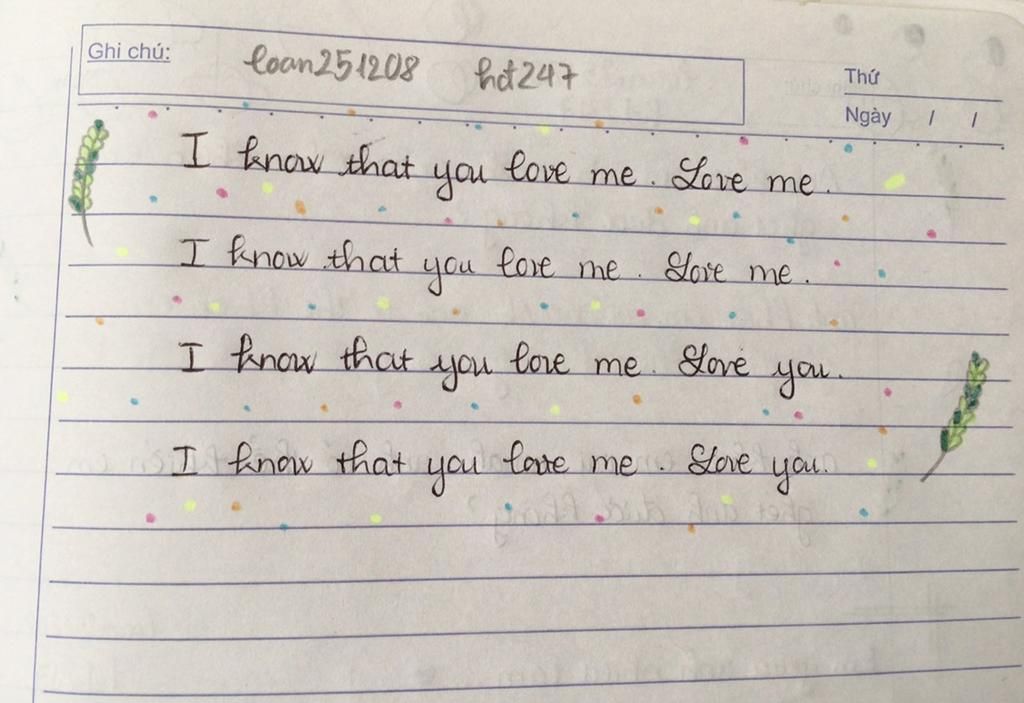 Ghi chú: loan251208 hđ247
Thứ
Ngày / /
I know that you love me. Love me.
I know that you love me. Love me.
I know that you love me. Love you.
I know that you love me. Love you.